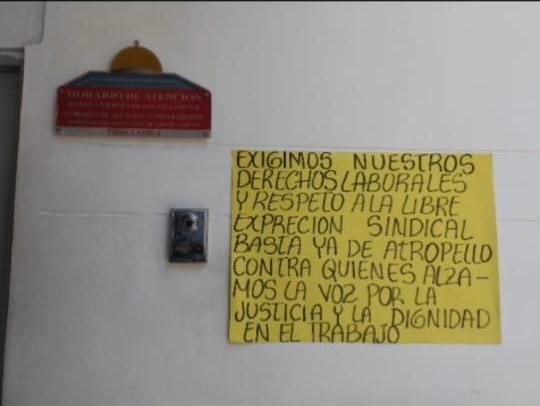 HORARIO DE ATENCION
EXIGIMOS NUESTROS
DERECHOS LABORALES
Y RESPETO A LA LIBRE
EXPRECION SINDICAL
BASTA YA DE ATROPELLO
CONTRA QUIENES ALZA-
MOS LA VOZ POR LA
JUSTICIA Y LA DIGNIDAD
EN EL TRABAJO